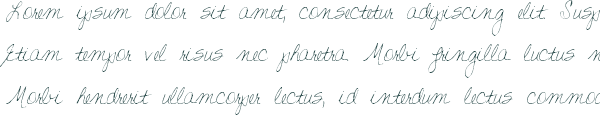 Lorem ipsum dolor sit amet, consectetur adipiscing elit. Susp
Etiam tempor vel risus nec pharetra. Morbi fringilla luctus n
Morbi hendrerit ullamcorper lectus, id interdum lectus commod